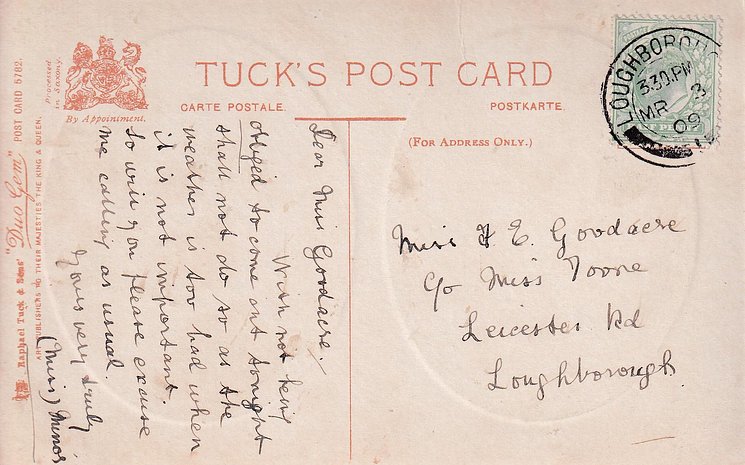 TUCK'S POST CARD
CARTE POSTALE.
POSTKARTE.
(FOR ADDRESS ONLY.)
Processed
in Saxony.
By Appointment.
Raphael Tuck & Sons' "Duo Gem" POST CARD 5782.
ART PUBLISHERS TO THEIR MAJESTIES THE KING & QUEEN.
LOUGHBOROUGH
3.30.PM
MR 3
09
Dear Miss Goodacre.
With not being
obliged to come out tonight
shall not do so as the
weather is too bad when
it is not important.
So will you please excuse
me calling as usual.
Yours very truly
(Miss)
Miss E. Goodacre
c/o Miss Toone
Leicester Rd
Loughborough.